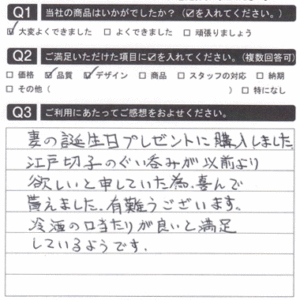 Q1 当社の商品はいかがでしたか?(☑を入れてください。)
☑大変よくできました □よくできました □頑張りましょう
Q2 ご満足いただけた項目に☑を入れてください。(複数回答可)
□価格 ☑品質 ☑デザイン □商品 □スタッフの対応 □納期
□その他( ) □特になし
Q3 ご利用にあたってご感想をおよせください。
妻の誕生日プレゼントに購入しました
江戸切子のぐい呑みが以前より
欲しいと申していた為、喜んで
貰えました。有難うございます。
冷酒の口当たりが良いと満足
しているようです。